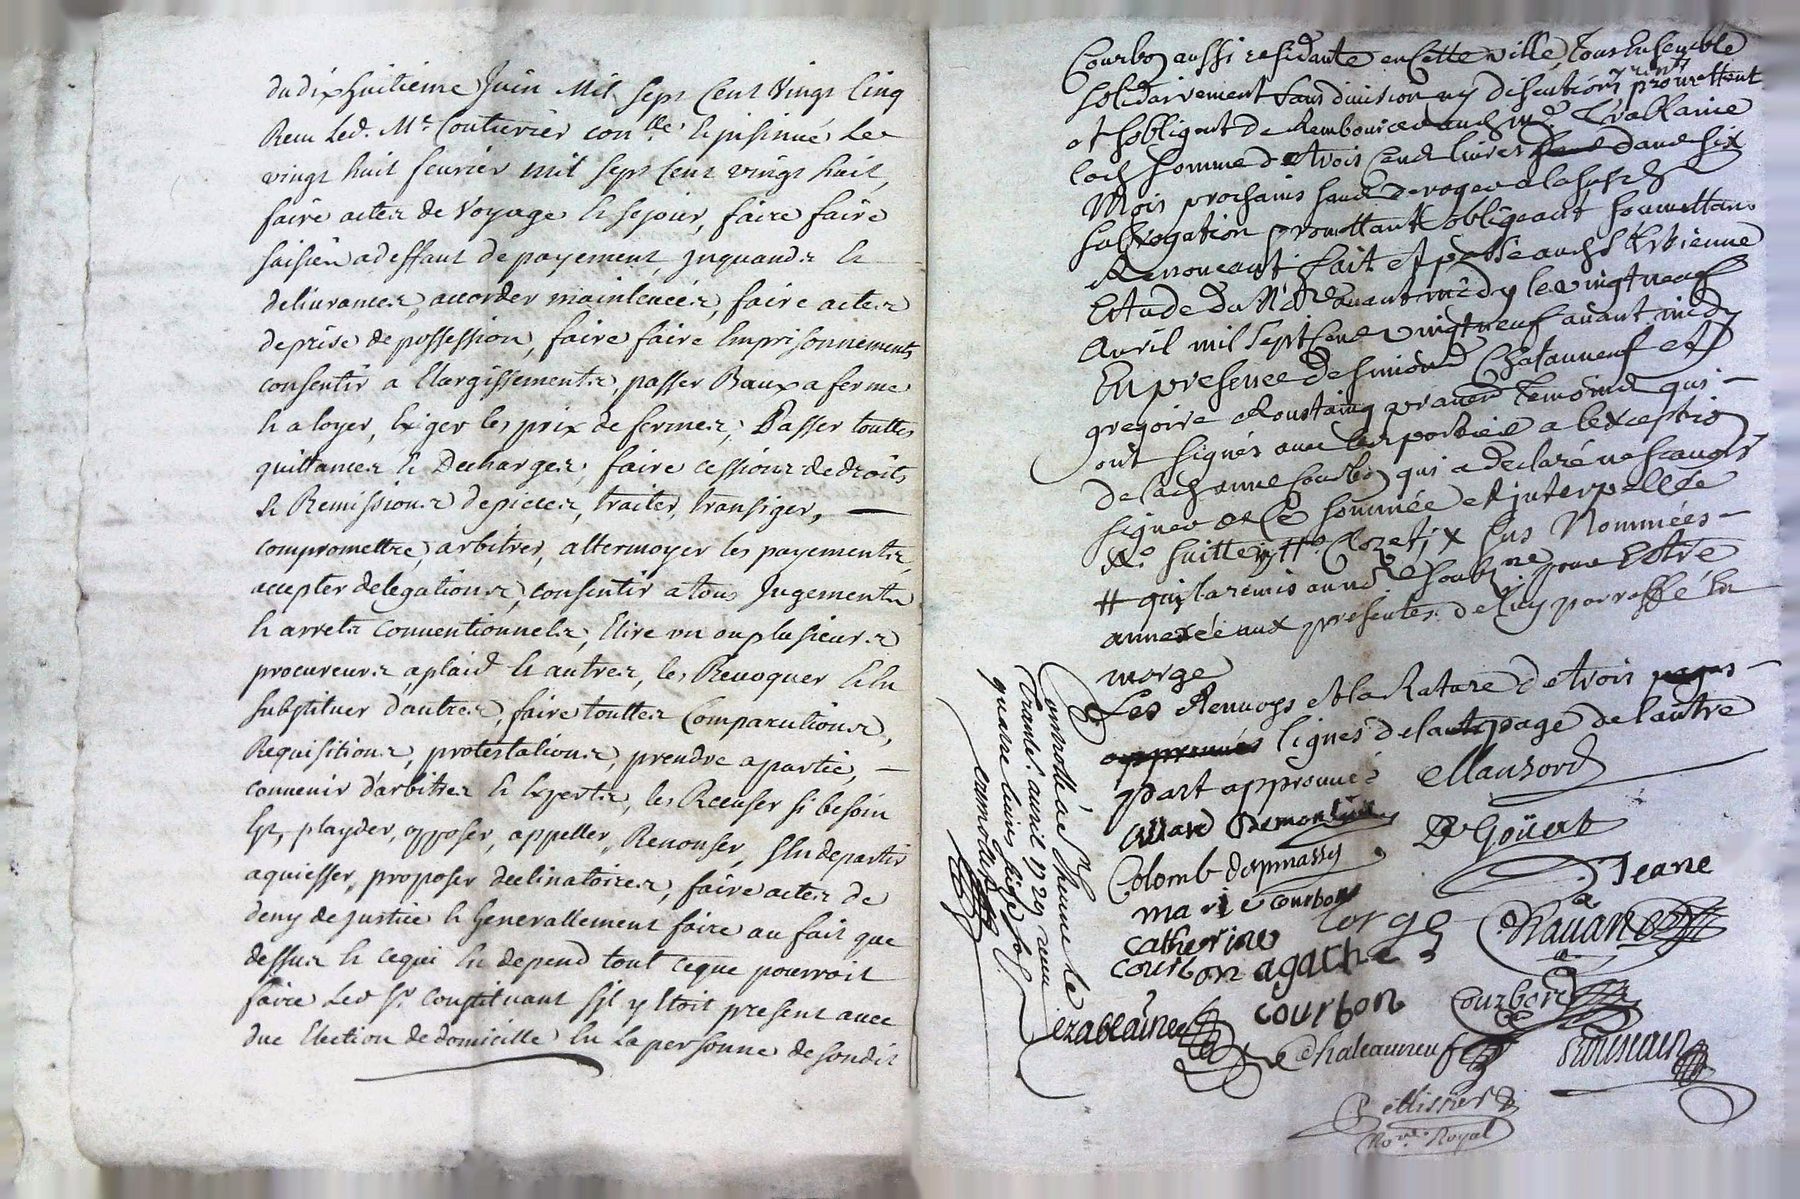 du dix huitieme Juin Mil Sept Cent Vingt Cinq
Reçu Led. Mr. Couturier con.lle & insinué Le
vingt huit feurier mil sept cent vingt huit,
faire actes de Voyage & sejour, faire faire
saisies a deffaut de payement, Jnquander &
deliurances, accorder mainleuées, faire actes
de prise de possession, faire faire Emprisonnements
consentir a Elargissements, passer Baux a ferme
& a loyer, Exiger les prix de fermes, Passer touttes
quittances & Decharges, faire cessions de droits
& Remissions de pieces, traiter, transiger, —
compromettre, arbitrer, attermoyer les payements,
accepter delegations, consentir a tous Jugements
& arrets Conuentionnels, Elire un ou plusieurs
procureurs a plaid & autres, les Reuoquer & En
substituer d'autres, faire touttes Comparutions,
Requisitions, protestations, prendre a partie, —
conuenir d'arbitres & Experts, les Recuser si besoin
Est, playder, opposer, appeller, Renonser, S'en departir
aquiesser, proposer declinatoires, faire actes de
deny de justice & Generallement faire au fait que
dessus & cequi En depend tout ceque pourroit
faire Led Sr. Constituant s'il y Etoit present auec
due Election de domicille En La personne de sondit
Courbon aussi residante en Cette ville, tous Ensemble
solidairement sans diuision ny discution promettent
et sobligent de Rembourcer aud. Trablaine
lad. somme de trois cent liures dans six
Mois prochains
subrogation promettant obligeant soumettant
Renonceant fait et passé aud. St Etienne
Estude du No.re auant midy le vingt neuf
Auril mil sept cent vingt neuf auant midy
En presence de Simon Chataunneuf et
gregoire Roustaing temoins qui —
ont signés auec les parties a lexception
de lad. anne Courbon qui a declaré ne scauoir
signer de Ce sommée et interpellée
sus Nommées —
# quil a remis au no.re pour Estre
annexée aux presentes de luy parraffé En
marge
Les Renuoys et la Rature de trois pages —
approuués lignes de page de lautre
part approuué
Mansord
allard
De Goüert
Colomb
Jeane
marie courbon
catherine
courbon agathe
courbon
chauan
Courbon
ezablaine
Chateauneuf
Roustain
Pellissier
No.re Royal
Controllé a St Etienne le
trante auril 1729 receu
quatre liures